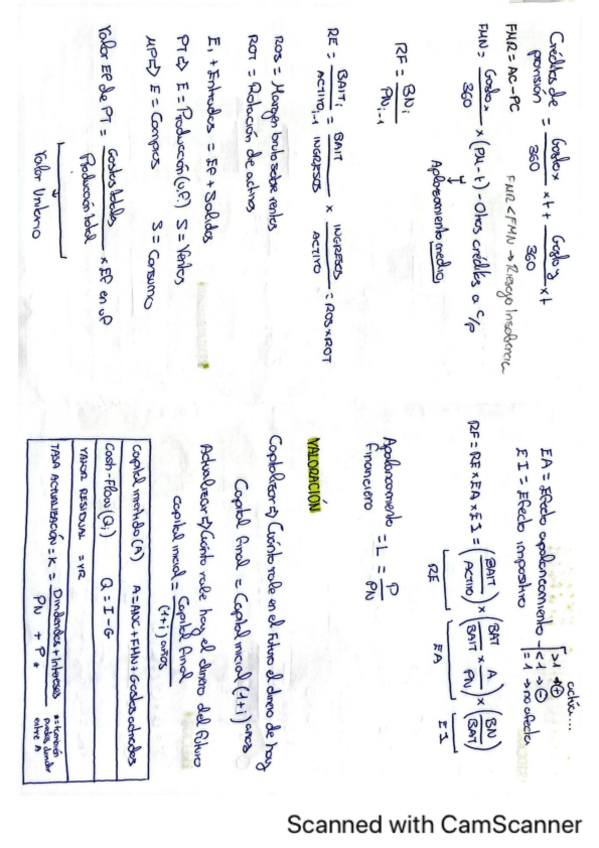 Créditos de provisión = Gastos x / 360 x t + Gastos y / 360 x t
FMR = AC - PC FMR < FMN → Riesgo Insolvencia
FMN = Gastos x / 360 x (PM - t) - Otros créditos a c/p
Aplazamiento medio
RF = BNi / PNi-1
RE = BAITi / ACTIVOi-1 = BAIT / INGRESOS x INGRESOS / ACTIVO = ROS x ROT
ROS = Margen bruto sobre ventas
ROT = Rotación de activos
Ei + Entradas = EF + Salidas
PT ⇒ E = Producción (u.F.) S = Ventas
MP ⇒ E = Compras S = Consumo
Valor EF de PT = Gastos totales / Producción total x EF en uF
Valor Unitario
actúa...
EA = Efecto apalancamiento >1 → ⊕
<1 → ⊖
EI = Efecto impositivo =1 → no afecta
RF = RE x EA x EI = (BAIT / ACTIVO) x (BAT / BAIT x A / PN) x (BN / BAT)
RE EA EI
Apalancamiento financiero = L = P / PN
VALORACIÓN
Capitalizar ⇒ Cuánto vale en el futuro el dinero de hoy
Capital final = Capital inicial (1+i) años
Actualizar ⇒ Cuánto vale hoy el dinero del futuro
Capital inicial = Capital final / (1+i) años
Capital invertido (A) A = ANC + FMN + Gastos activados
Cash-Flow (Qi) Q = I - G
VALOR RESIDUAL = VR
TASA ACTUALIZACIÓN = K = Dividendos + Intereses / PN + P *
entre A